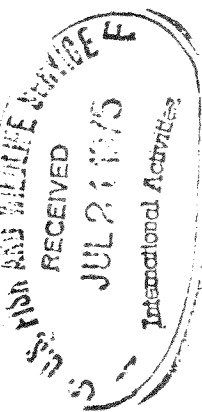 U.S. FISH AND WILDLIFE SERVICE
RECEIVED
JUL
International Activities